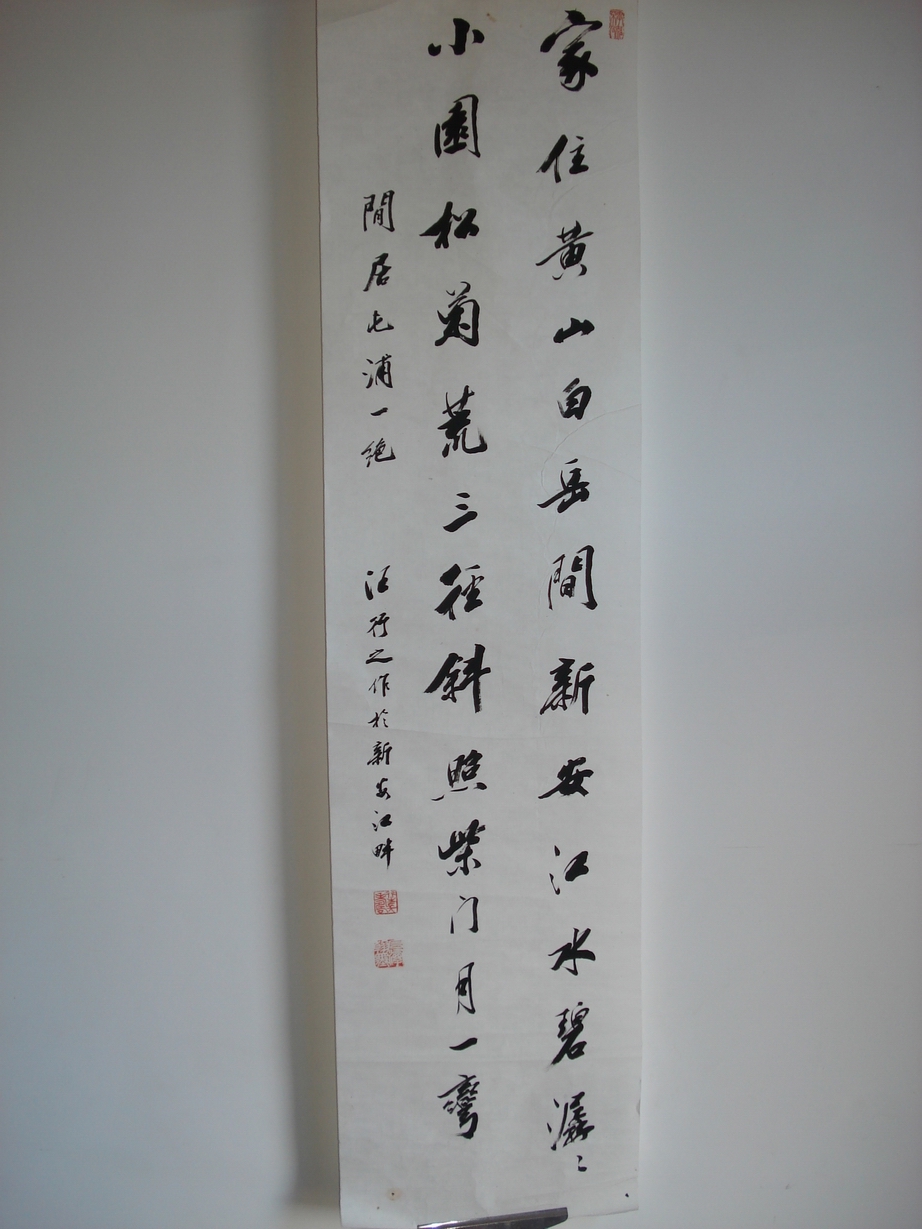 家住黄山白岳間新安江水碧潺〻
小園松菊荒三徑斜照柴门月一彎
閒居屯浦一绝 汪行之作於新安江畔